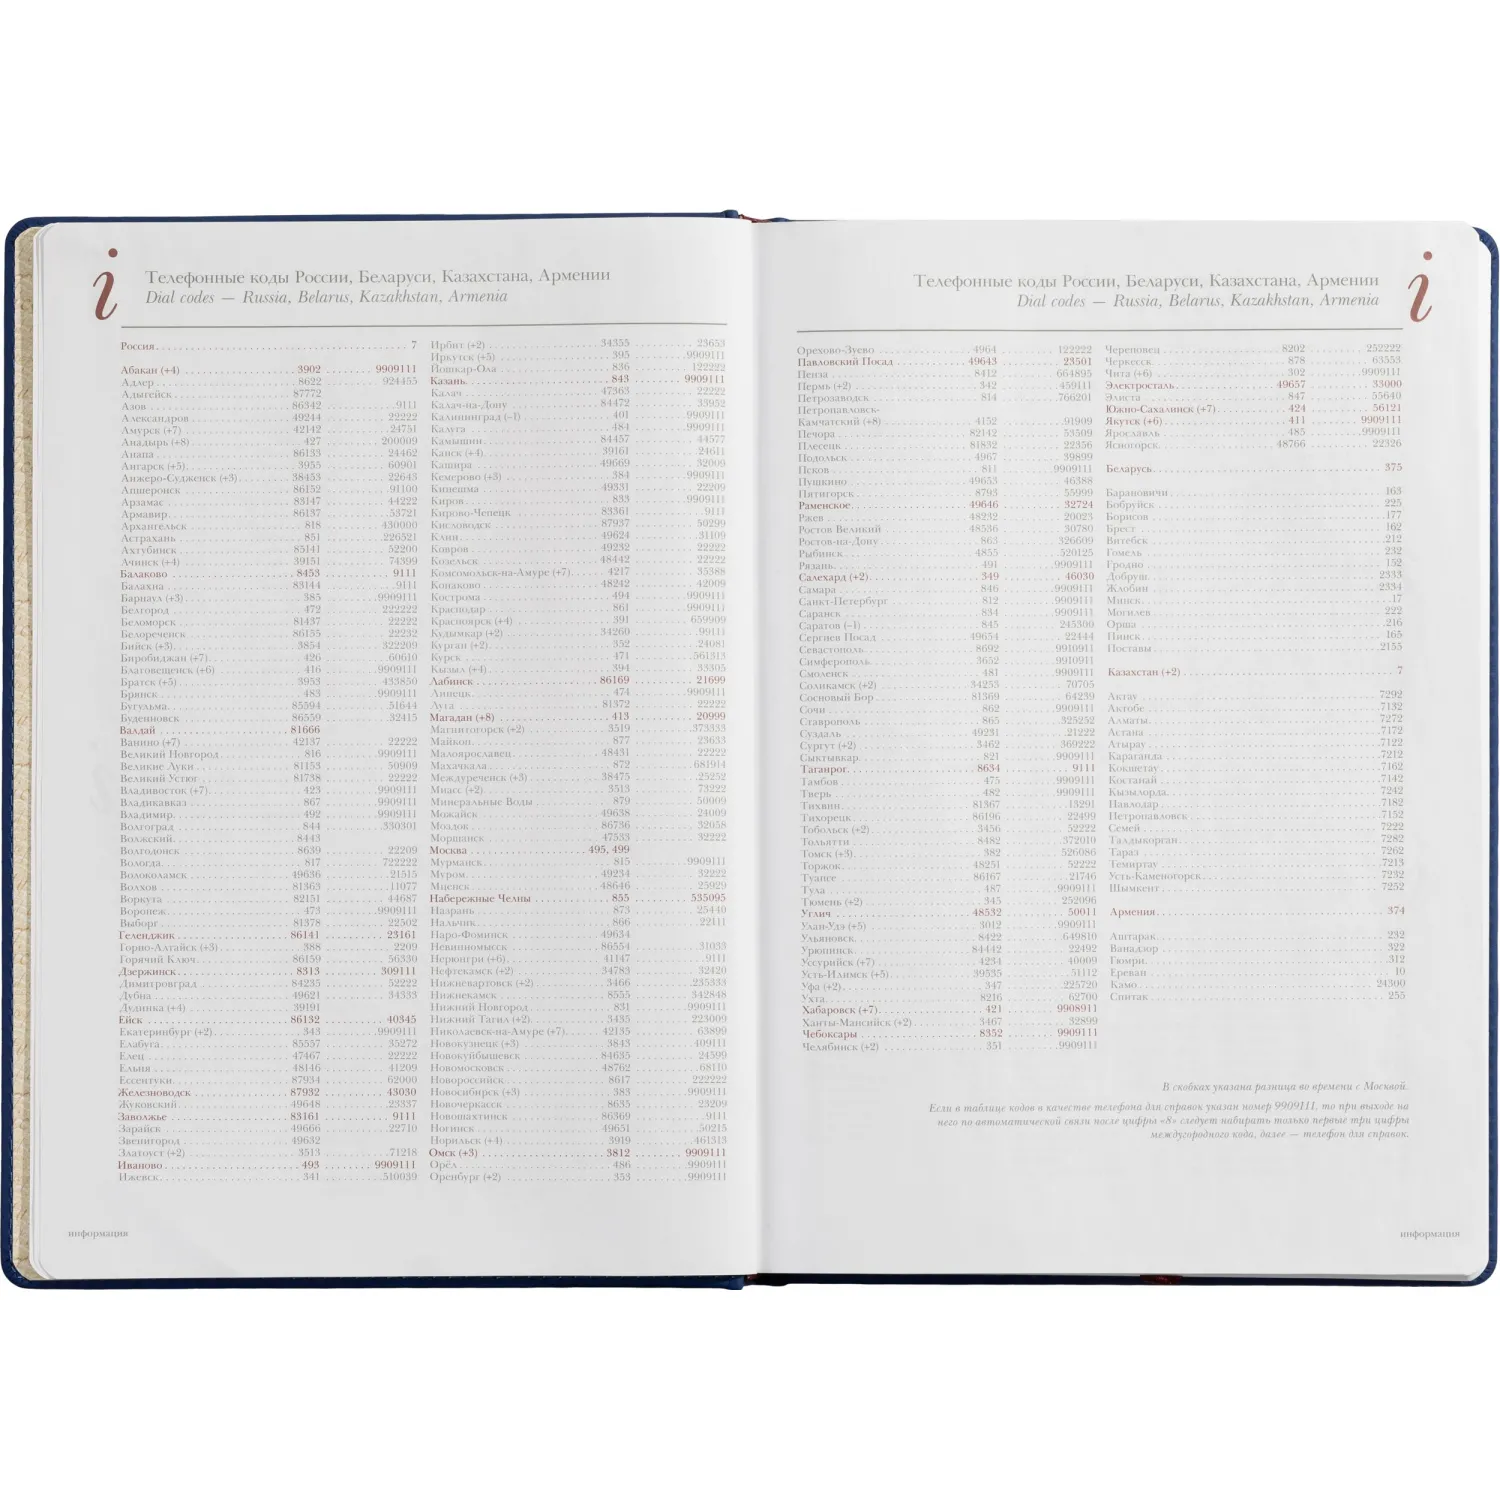 i
Телефонные коды России, Беларуси, Казахстана, Армении
Dial codes — Russia, Belarus, Kazakhstan, Armenia
Россия 7
Абакан (+4) 3902 9909111
Адлер 8622 924455
Адыгейск 87772
Азов 86342 9111
Александров 49244 22222
Амурск (+7) 42142 24751
Анадырь (+8) 427 200009
Анапа 86133 24462
Ангарск (+5) 3955 60901
Анжеро-Судженск (+3) 38453 22643
Апшеронск 86152 91100
Арзамас 83147 44222
Армавир 86137 53721
Архангельск 818 430000
Астрахань 851 226521
Ахтубинск 85141 52200
Ачинск (+4) 39151 74399
Балаково 8453 9111
Балахна 83144 9111
Барнаул (+3) 385 9909111
Белгород 472 222222
Беломорск 81437 22222
Белореченск 86155 22232
Бийск (+3) 3854 322209
Биробиджан (+7) 426 60610
Благовещенск (+6) 416 9909111
Братск (+5) 3953 433850
Брянск 483 9909111
Бугульма 85594 51644
Буденновск 86559 32415
Валдай 81666
Ванино (+7) 42137 22222
Великий Новгород 816 9909111
Великие Луки 81153 50909
Великий Устюг 81738 22222
Владивосток (+7) 423 9909111
Владикавказ 867 9909111
Владимир 492 9909111
Волгоград 844 330301
Волжский 8443
Волгодонск 8639 22209
Вологда 817 722222
Волоколамск 49636 21515
Волхов 81363 11077
Воркута 82151 44687
Воронеж 473 9909111
Выборг 81378 22502
Геленджик 86141 23161
Горно-Алтайск (+3) 388 2209
Горячий Ключ 86159 56330
Дзержинск 8313 309111
Димитровград 84235 52222
Дубна 49621 34333
Дудинка (+4) 39191
Ейск 86132 40345
Екатеринбург (+2) 343 9909111
Елабуга 85557 35272
Елец 47467 22222
Ельня 48146 41209
Ессентуки 87934 62000
Железноводск 87932 43030
Жуковский 49648 23337
Заволжье 83161 9111
Зарайск 49666 22710
Звенигород 49632
Златоуст (+2) 3513 71218
Иваново 493 9909111
Ижевск 341 510039
Ирбит (+2) 34355 23653
Иркутск (+5) 395 9909111
Йошкар-Ола 836 122222
Казань 843 9909111
Калач 47363 22222
Калач-на-Дону 84472 33952
Калининград (–1) 401 9909111
Калуга 484 9909111
Камышин 84457 44577
Канск (+4) 39161 24611
Кашира 49669 32009
Кемерово (+3) 384 9909111
Кинешма 49331 22209
Киров 833 9909111
Кирово-Чепецк 83361 9111
Кисловодск 87937 50299
Клин 49624 31109
Ковров 49232 22222
Козельск 48442 22222
Комсомольск-на-Амуре (+7) 4217 35388
Конаково 48242 42009
Кострома 494 9909111
Краснодар 861 9909111
Красноярск (+4) 391 659909
Кудымкар (+2) 34260 99111
Курган (+2) 352 24081
Курск 471 561313
Кызыл (+4) 394 33305
Лабинск 86169 21699
Липецк 474 9909111
Луга 81372 22222
Магадан (+8) 413 20999
Магнитогорск (+2) 3519 373333
Майкоп 877 23633
Малоярославец 48431 22222
Махачкала 872 681914
Междуреченск (+3) 38475 25252
Миасс (+2) 3513 73222
Минеральные Воды 879 50009
Можайск 49638 24009
Моздок 86736 32058
Моршанск 47533 32222
Москва 495, 499
Мурманск 815 9909111
Муром 49234 32222
Мценск 48646 25929
Набережные Челны 855 535095
Назрань 873 25440
Нальчик 866 22111
Наро-Фоминск 49634
Невинномысск 86554 31033
Нерюнгри (+6) 41147 9111
Нефтекамск (+2) 34783 32420
Нижневартовск (+2) 3466 235333
Нижнекамск 8555 342848
Нижний Новгород 831 9909111
Нижний Тагил (+2) 3435 223009
Николаевск-на-Амуре (+7) 42135 63899
Новокузнецк (+3) 3843 409111
Новокуйбышевск 84635 24599
Новомосковск 48762 68110
Новороссийск 8617 222222
Новосибирск (+3) 383 9909111
Новочеркасск 8635 23209
Новошахтинск 86369 9111
Ногинск 49651 50215
Норильск (+4) 3919 461313
Омск (+3) 3812 9909111
Орёл 486 9909111
Оренбург (+2) 353 9909111
информация
i
Телефонные коды России, Беларуси, Казахстана, Армении
Dial codes — Russia, Belarus, Kazakhstan, Armenia
Орехово-Зуево 4964 122222
Павловский Посад 49643 23501
Пенза 8412 664895
Пермь (+2) 342 459111
Петрозаводск 814 766201
Петропавловск-
Камчатский (+8) 4152 91909
Печора 82142 53509
Плесецк 81832 22356
Подольск 4967 39899
Псков 811 9909111
Пушкино 49653 46388
Пятигорск 8793 55999
Раменское 49646 32724
Ржев 48232 20023
Ростов Великий 48536 30780
Ростов-на-Дону 863 326609
Рыбинск 4855 520125
Рязань 491 9909111
Салехард (+2) 349 46030
Самара 846 9909111
Санкт-Петербург 812 9909111
Саранск 834 9909111
Саратов (–1) 845 245300
Сергиев Посад 49654 22444
Севастополь 8692 9910911
Симферополь 3652 9910911
Смоленск 481 9909111
Соликамск (+2) 34253 70705
Сосновый Бор 81369 64239
Сочи 862 9909111
Ставрополь 865 325252
Суздаль 49231 21222
Сургут (+2) 3462 369222
Сыктывкар 821 9909111
Таганрог 8634 9111
Тамбов 475 9909111
Тверь 482 9909111
Тихвин 81367 13291
Тихорецк 86196 22499
Тобольск (+2) 3456 52222
Тольятти 8482 372019
Томск (+3) 382 526086
Торжок 48251 52222
Туапсе 86167 21746
Тула 487 9909111
Тюмень (+2) 345 252096
Углич 48532 50011
Улан-Удэ (+5) 3012 9909111
Ульяновск 8422 649810
Урюпинск 84442 22492
Уссурийск (+7) 4234 40009
Усть-Илимск (+5) 39535 51112
Уфа (+2) 347 225720
Ухта 8216 62700
Хабаровск (+7) 421 9908911
Ханты-Мансийск (+2) 3467 32899
Чебоксары 8352 9909111
Челябинск (+2) 351 9909111
Череповец 8202 252222
Черкесск 878 63553
Чита (+6) 302 9909111
Электросталь 49657 33000
Элиста 847 55640
Южно-Сахалинск (+7) 424 56121
Якутск (+6) 411 9909111
Ярославль 485 9909111
Ясногорск 48766 22326
Беларусь 375
Барановичи 163
Бобруйск 225
Борисов 177
Брест 162
Витебск 212
Гомель 232
Гродно 152
Добруш 2333
Жлобин 2334
Минск 17
Могилев 222
Орша 216
Пинск 165
Поставы 2155
Казахстан (+2) 7
Актау 7292
Актобе 7132
Алматы 7272
Астана 7172
Атырау 7122
Караганда 7212
Кокшетау 7162
Костанай 7142
Кызылорда 7242
Павлодар 7182
Петропавловск 7152
Семей 7222
Талдыкорган 7282
Тараз 7262
Темиртау 7213
Усть-Каменогорск 7232
Шымкент 7252
Армения 374
Аштарак 232
Ванадзор 322
Гюмри 312
Ереван 10
Камо 24300
Спитак 255
В скобках указана разница во времени с Москвой.
Если в таблице кодов в качестве телефона для справок указан номер 9909111, то при выходе на
него по автоматической связи после цифры «8» следует набирать только первые три цифры
междугородного кода, далее — телефон для справок.
информация